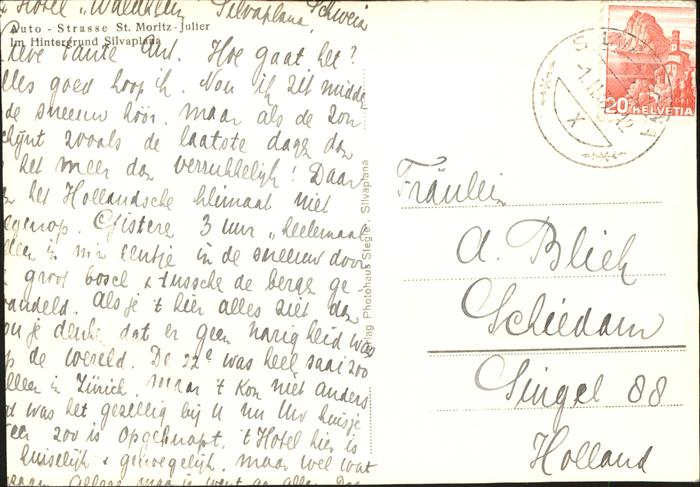 Hotel "Waldheim" Silvaplana, Schweiz
Auto - Strasse St. Moritz - Julier
Im Hintergrund Silvaplana
ieve Tante Uul. Hoe gaat het?
lles goed hoop ik. Nou ik zit midde
de sneeuw hoor. maar als de zon
chijnt zooals de laatste dage dan
het meer dan verrukkelijk! Daar
het Hollandsche klimaat niet
egenop. Gistere 3 uur heelemaal
lleen in m'n eentje in de sneeuw door
groot bosch & tussche de berge ge-
andeld. Als je 't hier alles ziet dan
ou je denke dat er geen narigheid was
op de wereld. De 22e was heel saai zoo
lleen in Zürich, maar 't kon niet anders
was het gezellig bij U nu Uw huisje
weer zoo is opgeknapt. 't Hotel hier is
huiselijk & genoegelijk, maar wel wat
Verlag Photohaus Stegre, Silvaplana
20 HELVETIA
X
Fräulein
A. Bliek
Schiedam
Singel 88
Holland